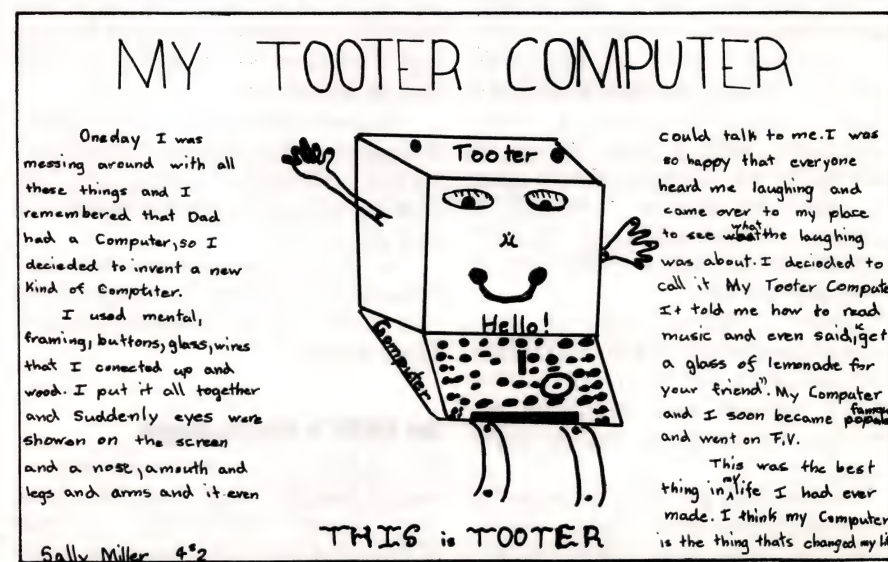 MY TOOTER COMPUTER
Oneday I was
messing around with all
these things and I
remembered that Dad
had a Computer, so I
decieded to invent a new
Kind of Computer.
I used mental,
framing, buttons, glass, wires
that I conected up and
wood. I put it all together
and Suddenly eyes were
showen on the screen
and a nose, amouth and
legs and arms and it even
Sally Miller 4S2
Tooter
Hello!
Computer
THIS is TOOTER
could talk to me. I was
so happy that everyone
heard me laughing and
came over to my place
to see what the laughing
was about. I decieded to
call it My Tooter Compute
It told me how to read
music and even said, "get
a glass of lemonade for
your friend". My Computer
and I soon became
and went on T.V.
This was the best
thing in my life I had ever
made. I think my Computer
is the thing thats changed my li